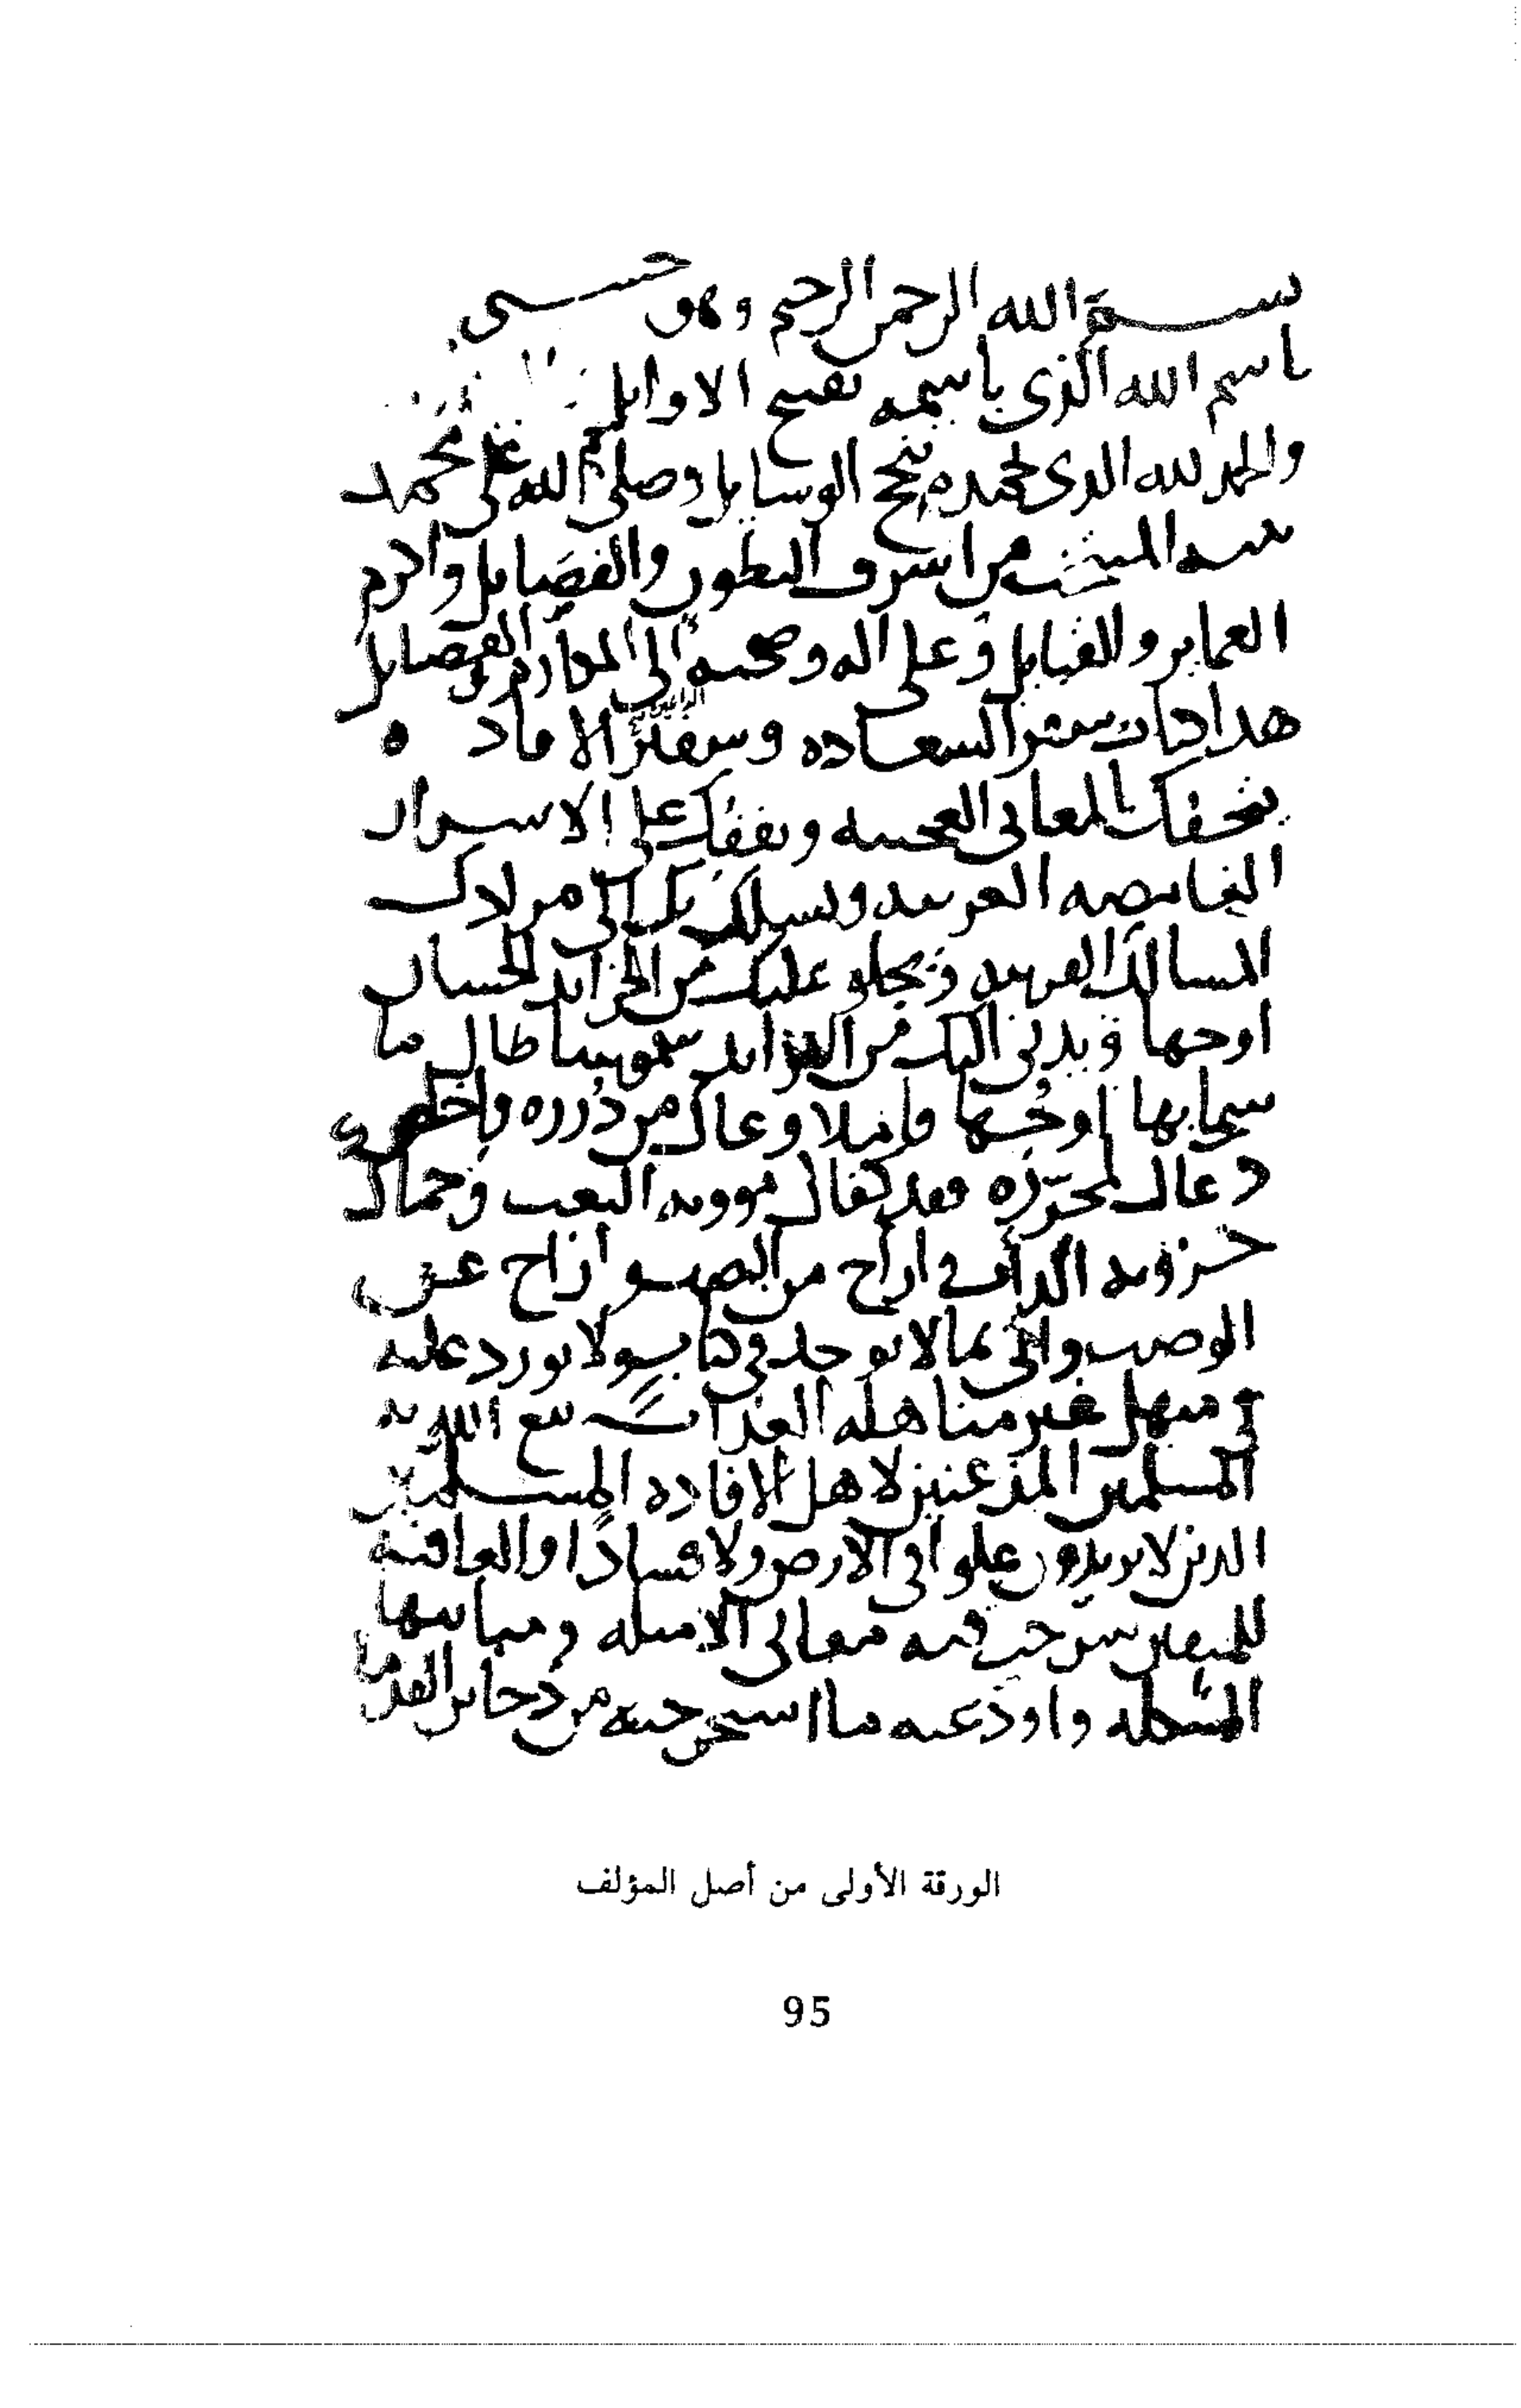 بسم الله الرحمن الرحيم وهو حسبي
باسم الله الذي باسمه تفتح الاوايل
والحمد لله الذي بحمده تنجح الوسايل وصلى الله على محمد
نبيه المنتخب من اشرف البطون والفصايل واكرم
العماير والقبايل وعلى اله وصحبه اولى المكارم والفضايل
هذا كتاب سفر السعاده وسفير الافاده
يتحفك بالمعاني العجيبه ويقفك على الاسرار
الغامضه الغريبه ويسلك بك الى مرادك
المسالك القريبه ويجلو عليك من الخرايد الحسان
اوجها ويدني اليك من الفرايد شموسا طال ما
سما بها اوجها فاملا وعاك من درره واخلص
دعاك لمحرره فقد كفاك مووونه التعب وحماك
حزونه الداب واراح من النصب وازاح عن
الوصب واتى بما لا يوجد في كتاب ولا يورد عليه
في منهل غير مناهله العذاب نفع الله به
المسلمين المذعنين لاهل الافاده المسلمين
الذين لا يريدون علوا في الارض ولا فسادًا والعاقبه
للمتقين شرحت فيه معاني الامثله ومبانيها
المشكله واودعته ما استخرجته من ذخاير القدما
الورقة الأولى من أصل المؤلف
95